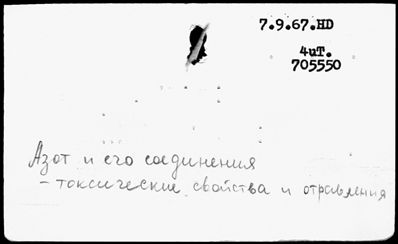 7.9.67.HD
4uT.
705550
Азот и его соединения
- токсические свойства и отравления